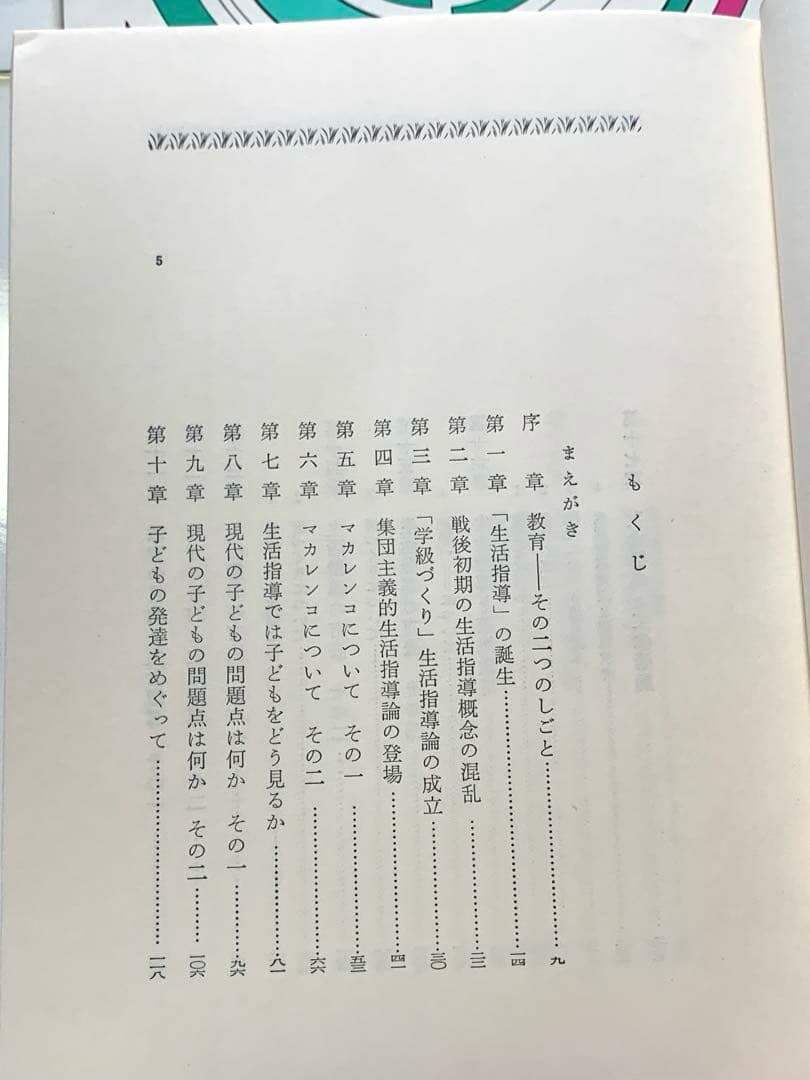 もくじ
まえがき
序章 教育――その二つのしごと……………………九
第一章 「生活指導」の誕生……………………一四
第二章 戦後初期の生活指導概念の混乱……………………二二
第三章 「学級づくり」生活指導論の成立……………………三〇
第四章 集団主義的生活指導論の登場……………………四一
第五章 マカレンコについて その一……………………五三
第六章 マカレンコについて その二……………………六六
第七章 生活指導では子どもをどう見るか……………………八一
第八章 現代の子どもの問題点は何か その一……………………九六
第九章 現代の子どもの問題点は何か その二……………………一〇六
第十章 子どもの発達をめぐって……………………一一八
5